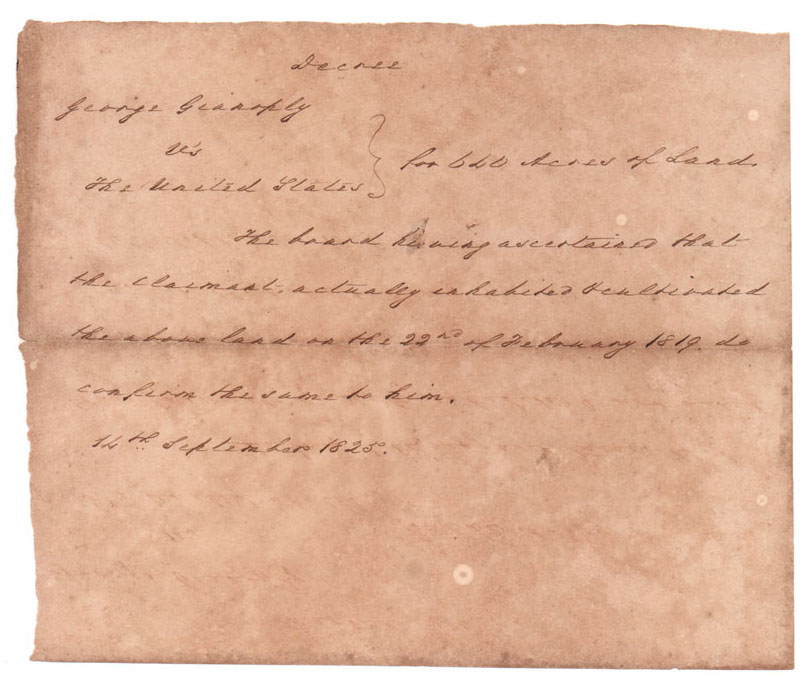 Decree
George Gianoply
Vs
The United States } for 640 Acres of Land.
The board having ascertained that
the Claimant, actually inhabited & cultivated
the above land on the 22nd of February 1819. do
confirm the same to him.
14th September 1825.